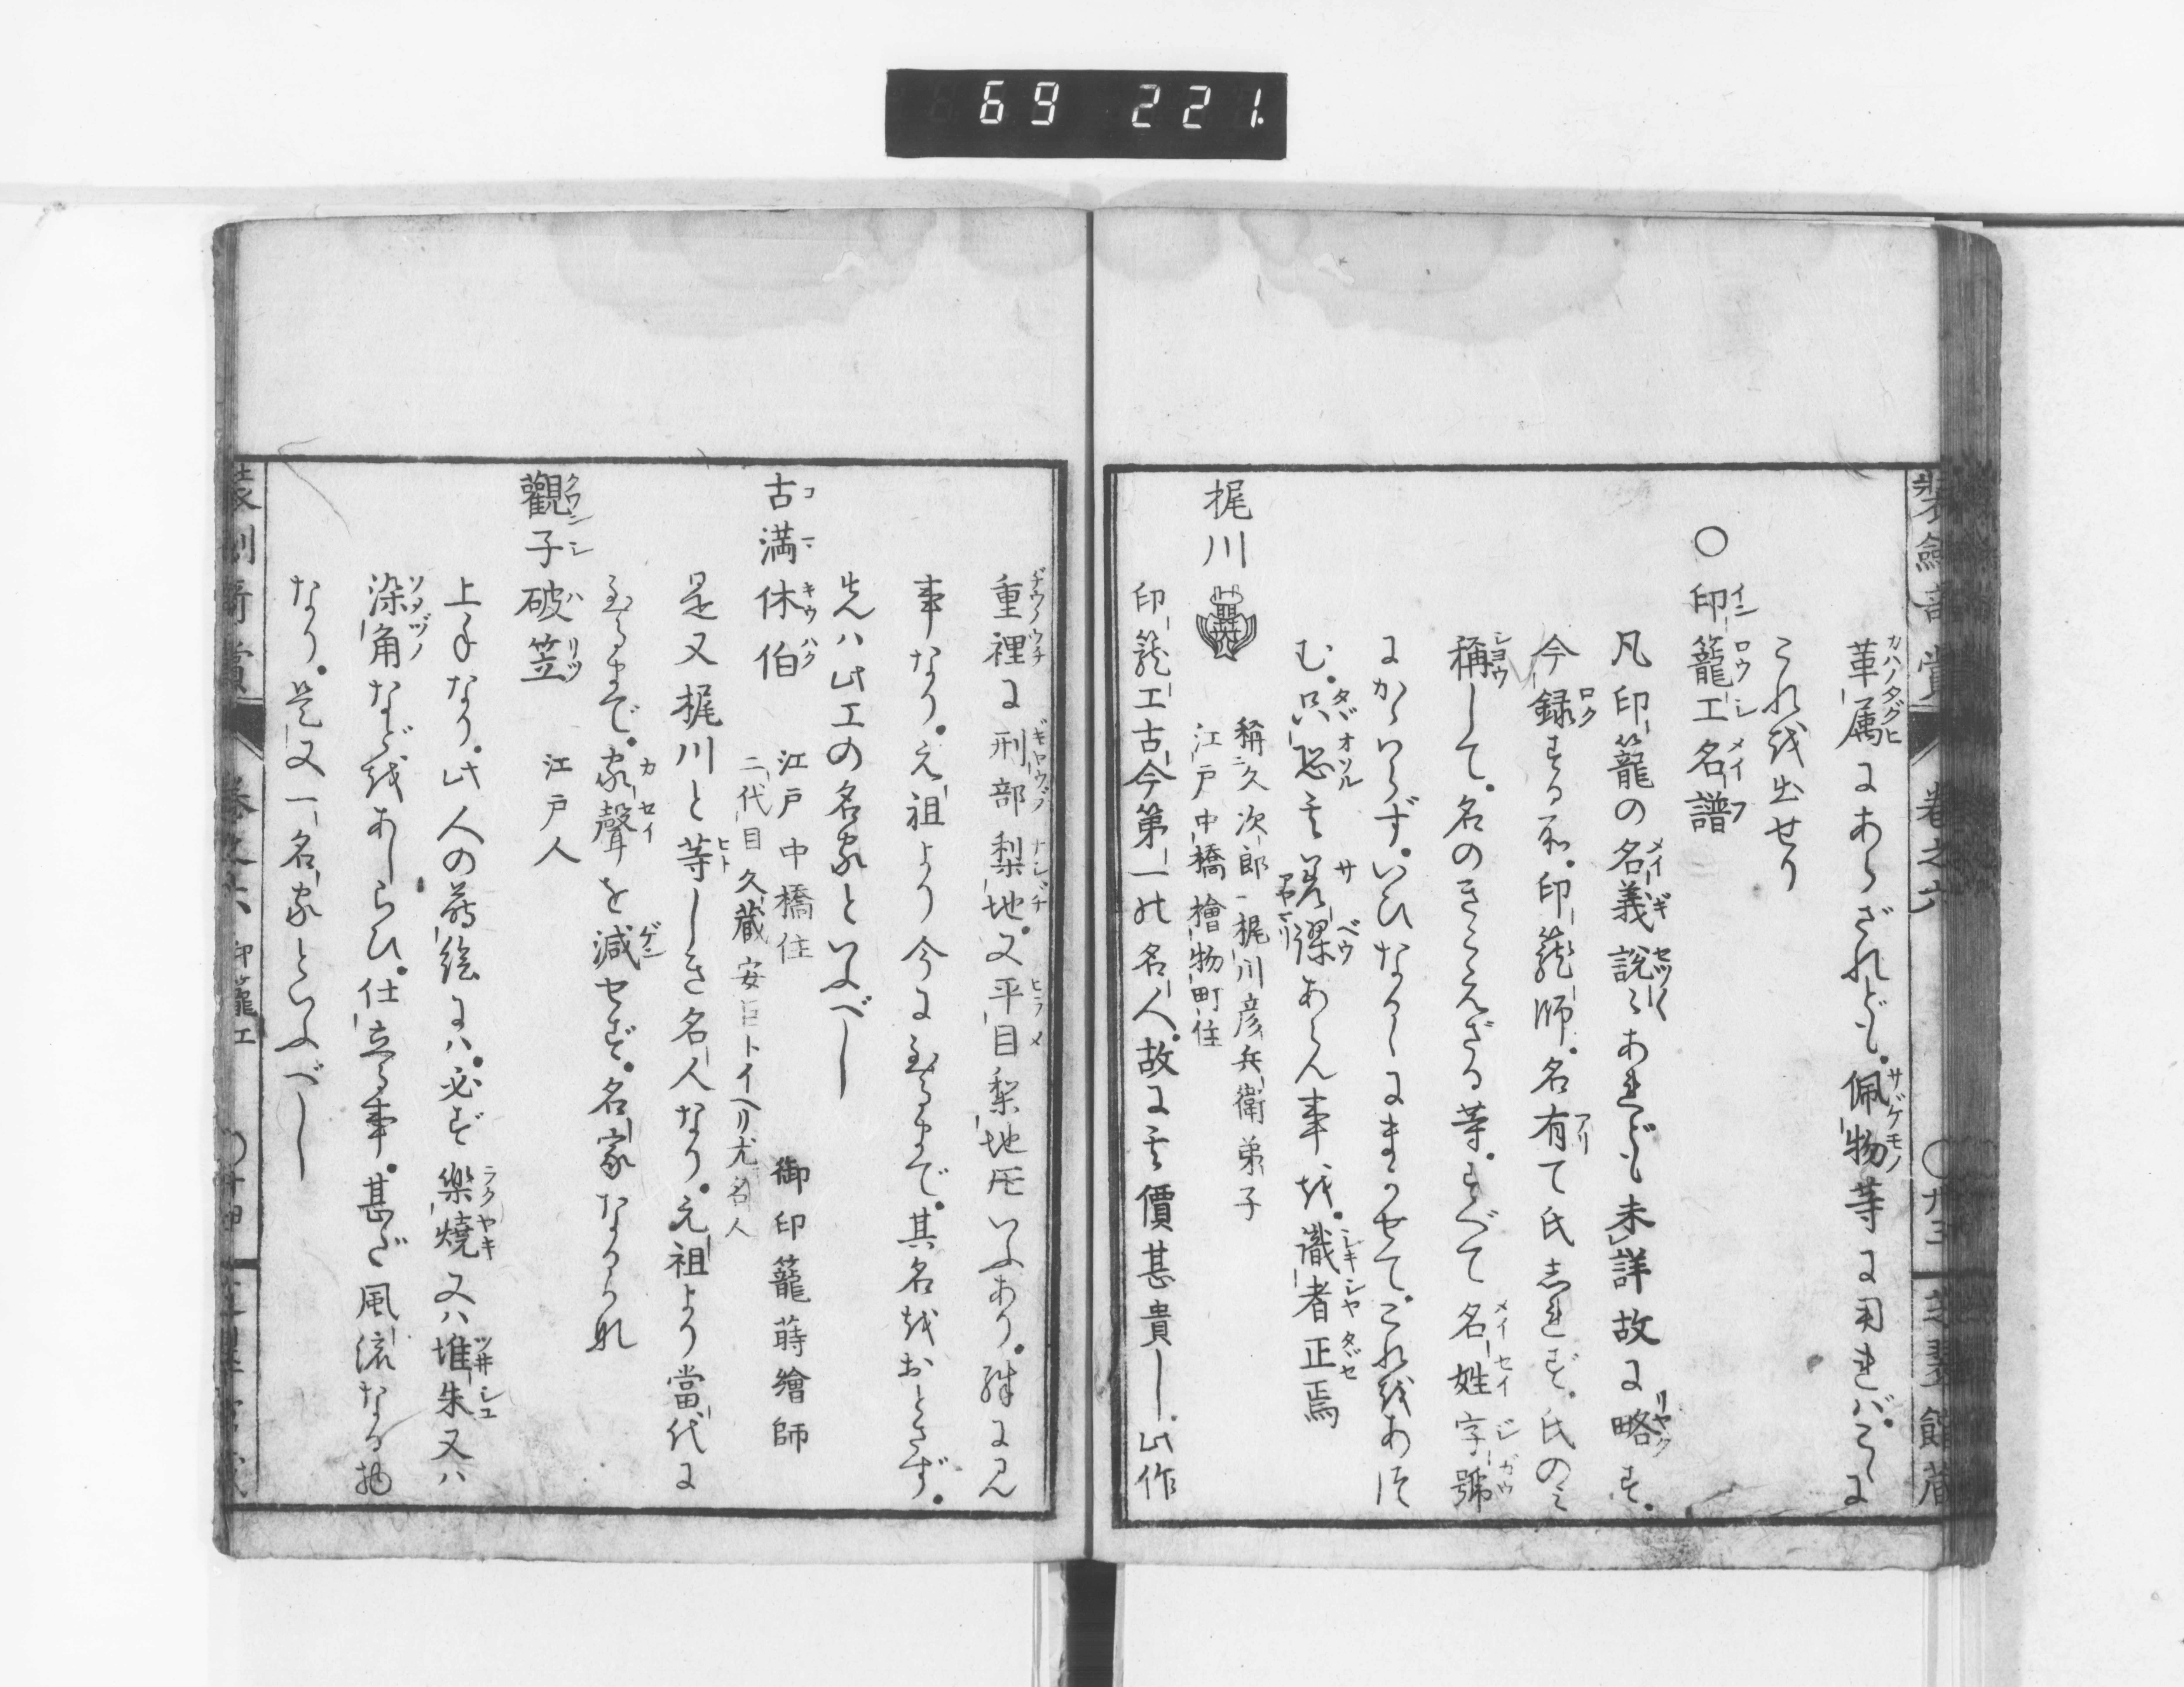 69 221.
革属にあらざれども。佩物等に用ればこゝに
これを出せり
○印籠工名譜
凡印籠の名義説〻あれども未詳故に略す。
今録する所。印籠師。名有て氏志れず。氏のミ
稱して。名のきこえざる等。すべて名姓字號
にかゝハらず。いひならハしにまかせて。これをあつ
む。只恐くハ差謬あらん事を。識者正焉
梶川
稱久次郎一梶川彦兵衛弟子
江戸中橋檜物町住
印籠工古今第一の名人。故に其價甚貴し。此作
重裡に刑部梨地。又平目梨地を用いふあり。殊にミん
事なり。元祖より今に至るまで。其名をおとさず。
先ハ此工の名家といふべし
古満休伯
江戸中橋住
御印籠蒔繪師
二代目久蔵安巨トイヘリ尤名人
是又梶川と等しき名人なり。元祖より當代に
至るまで。家聲を減せず。名家なるかれ
觀子破笠
江戸人
上手なり。此人の蒔絵にハ。必ず樂燒又ハ堆朱又ハ
染角などをあしらひ。仕立る事。甚だ風流なる物
なり。是又一名家といふべし